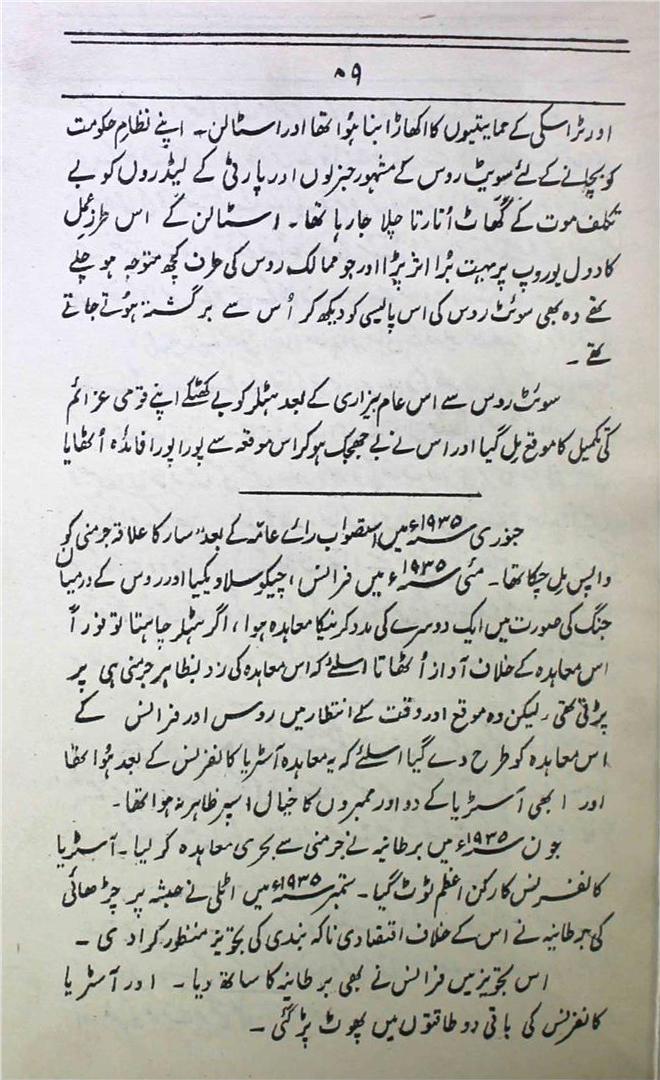 ۵۹
اور ٹراسکی کے حمایتیوں کا اکھاڑا بنا ہُوا تھا اور اسٹالن۔ اپنے نظامِ حکومت
کو بچانے کے لئے سویٹ روس کے مشہور جنرلوں اور پارٹی کے لیڈروں کو بے
تکلف موت کے گھاٹ اُتارتا چلا جا رہا تھا۔ اسٹالن کے اس طرزِ عمل
کا دول یوروپ پر بہت بُرا اثر پڑا اور جو ممالک روس کی طرف کچھ متوجہ ہو چلے
تھے وہ بھی سوئٹ روس کی اس پالیسی کو دیکھ کر اُس سے برگشتہ ہوتے جاتے
تھے۔
سوئٹ روس سے اس عام بیزاری کے بعد ہٹلر کو بے کھٹکے اپنے قومی عزائم
کی تکمیل کا موقع مل گیا اور اس نے بے جھجک ہو کر اس موقعہ سے پورا پورا فائدہ اُٹھایا
جنوری ۱۹۳۵ء میں استصواب رائے عامّہ کے بعد سار کا علاقہ جرمنی کو
واپس مل چکا تھا۔ مئی ۱۹۳۵ء میں فرانس، چیکوسلاویکیا اور روس کے درمیان
جنگ کی صورت میں ایک دوسرے کی مدد کرنیکا معاہدہ ہوا، اگر ہٹلر چاہتا تو فوراً
اس معاہدہ کے خلاف آواز اُٹھاتا اسلئے کہ اس معاہدہ کی زد بظاہر جرمنی ہی پر
پڑتی تھی، لیکن وہ موقع اور وقت کے انتظار میں روس اور فرانس کے
اس معاہدہ کو طرح دے گیا اسلئے کہ یہ معاہدہ آسٹریا کانفرنس کے بعد ہُوا تھا
اور ابھی آسٹریا کے دو اور ممبروں کا خیال اسپر ظاہر نہ ہوا تھا۔
جون ۱۹۳۵ء میں برطانیہ نے جرمنی سے بحری معاہدہ کر لیا۔ آسٹریا
کانفرنس کا رکن اعظم ٹوٹ گیا۔ ستمبر ۱۹۳۵ء میں اٹلی نے حبشہ پر چڑھائی
کی برطانیہ نے اس کے خلاف اقتصادی ناکہ بندی کی تجویز منظور کرا دی۔
اس تجویز میں فرانس نے بھی برطانیہ کا ساتھ دیا۔ اور آسٹریا
کانفرنس کی باقی دو طاقتوں میں پھوٹ پڑ گئی۔